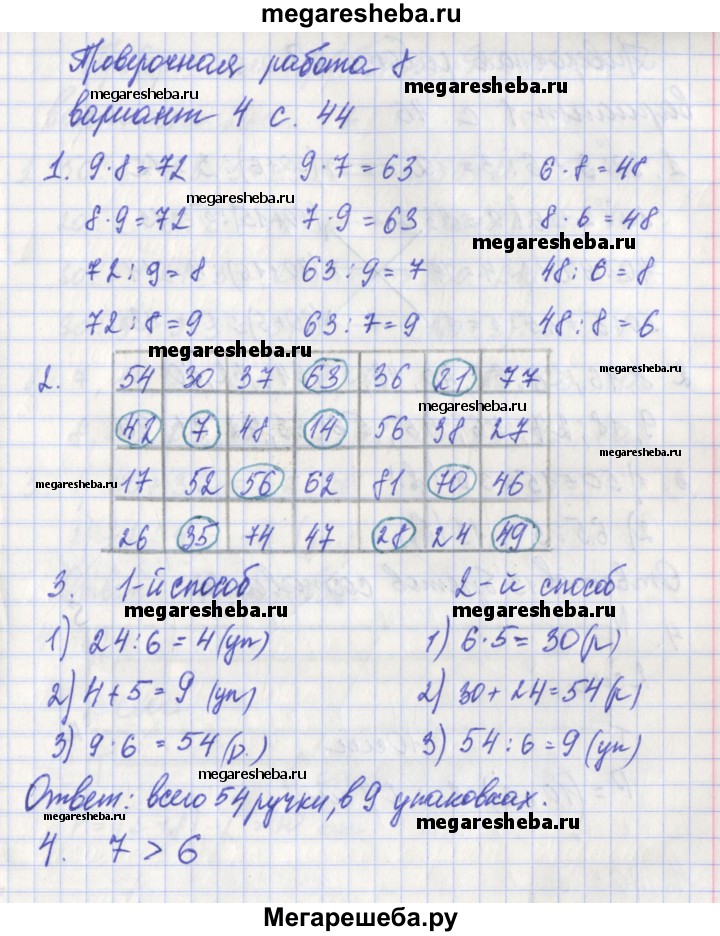 megaresheba.ru
Проверочная работа 8
megaresheba.ru
вариант 4 с. 44
megaresheba.ru
1. 9·8=72 9·7=63 6·8=48
megaresheba.ru
8·9=72 7·9=63 8·6=48
megaresheba.ru
72:9=8 63:9=7 48:6=8
72:8=9 63:7=9 48:8=6
megaresheba.ru
2. 54 30 37 63 36 21 77
megaresheba.ru
42 7 48 14 56 38 27
megaresheba.ru
megaresheba.ru
17 52 56 62 81 70 46
26 35 74 47 28 24 49
3. 1-й способ 2-й способ
megaresheba.ru megaresheba.ru
1) 24:6=4(уп) 1) 6·5=30(р)
2) 4+5=9 (уп) 2) 30+24=54(р)
megaresheba.ru
megaresheba.ru
3) 9·6=54(р.) 3) 54:6=9(уп)
megaresheba.ru
Ответ: всего 54 ручки, в 9 упаковках.
megaresheba.ru
megaresheba.ru
4. 7>6
Мегарешеба.ру